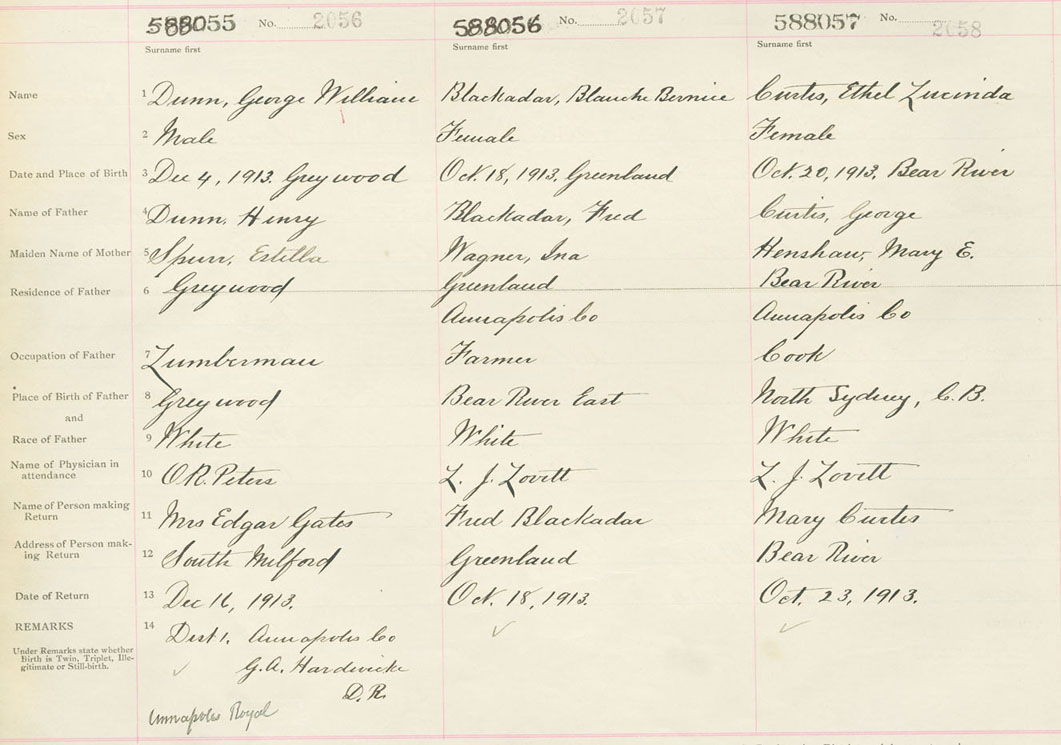 588055 No. 2056 588056 No. 2057 588057 No. 2058
Surname first Surname first Surname first
Name 1 Dunn, George William Blackadar, Blanche Bernice Curtis, Ethel Lucinda
Sex 2 Male Female Female
Date and Place of Birth 3 Dec 4, 1913. Greywood Oct. 18, 1913, Greenland Oct. 20, 1913, Bear River
Name of Father 4 Dunn, Henry Blackadar, Fred Curtis, George
Maiden Name of Mother 5 Spurr, Estella Wagner, Ina Henshaw, Mary E.
Residence of Father 6 Greywood Greenland Bear River
Annapolis Co Annapolis Co
Occupation of Father 7 Lumberman Farmer Cook
Place of Birth of Father 8 Greywood Bear River East North Sydney, C.B.
and
Race of Father 9 White White White
Name of Physician in
attendance 10 O.R. Peters L. J. Lovitt L. J. Lovitt
Name of Person making
Return 11 Mrs Edgar Gates Fred Blackadar Mary Curtis
Address of Person mak-
ing Return 12 South Milford Greenland Bear River
Date of Return 13 Dec 16, 1913. Oct. 18, 1913. Oct. 23, 1913.
REMARKS 14 Dist 1. Annapolis Co
Under Remarks state whether
Birth is Twin, Triplet, Ille-
gitimate or Still-birth.
G.A. Hardwicke
D.R.
Annapolis Royal